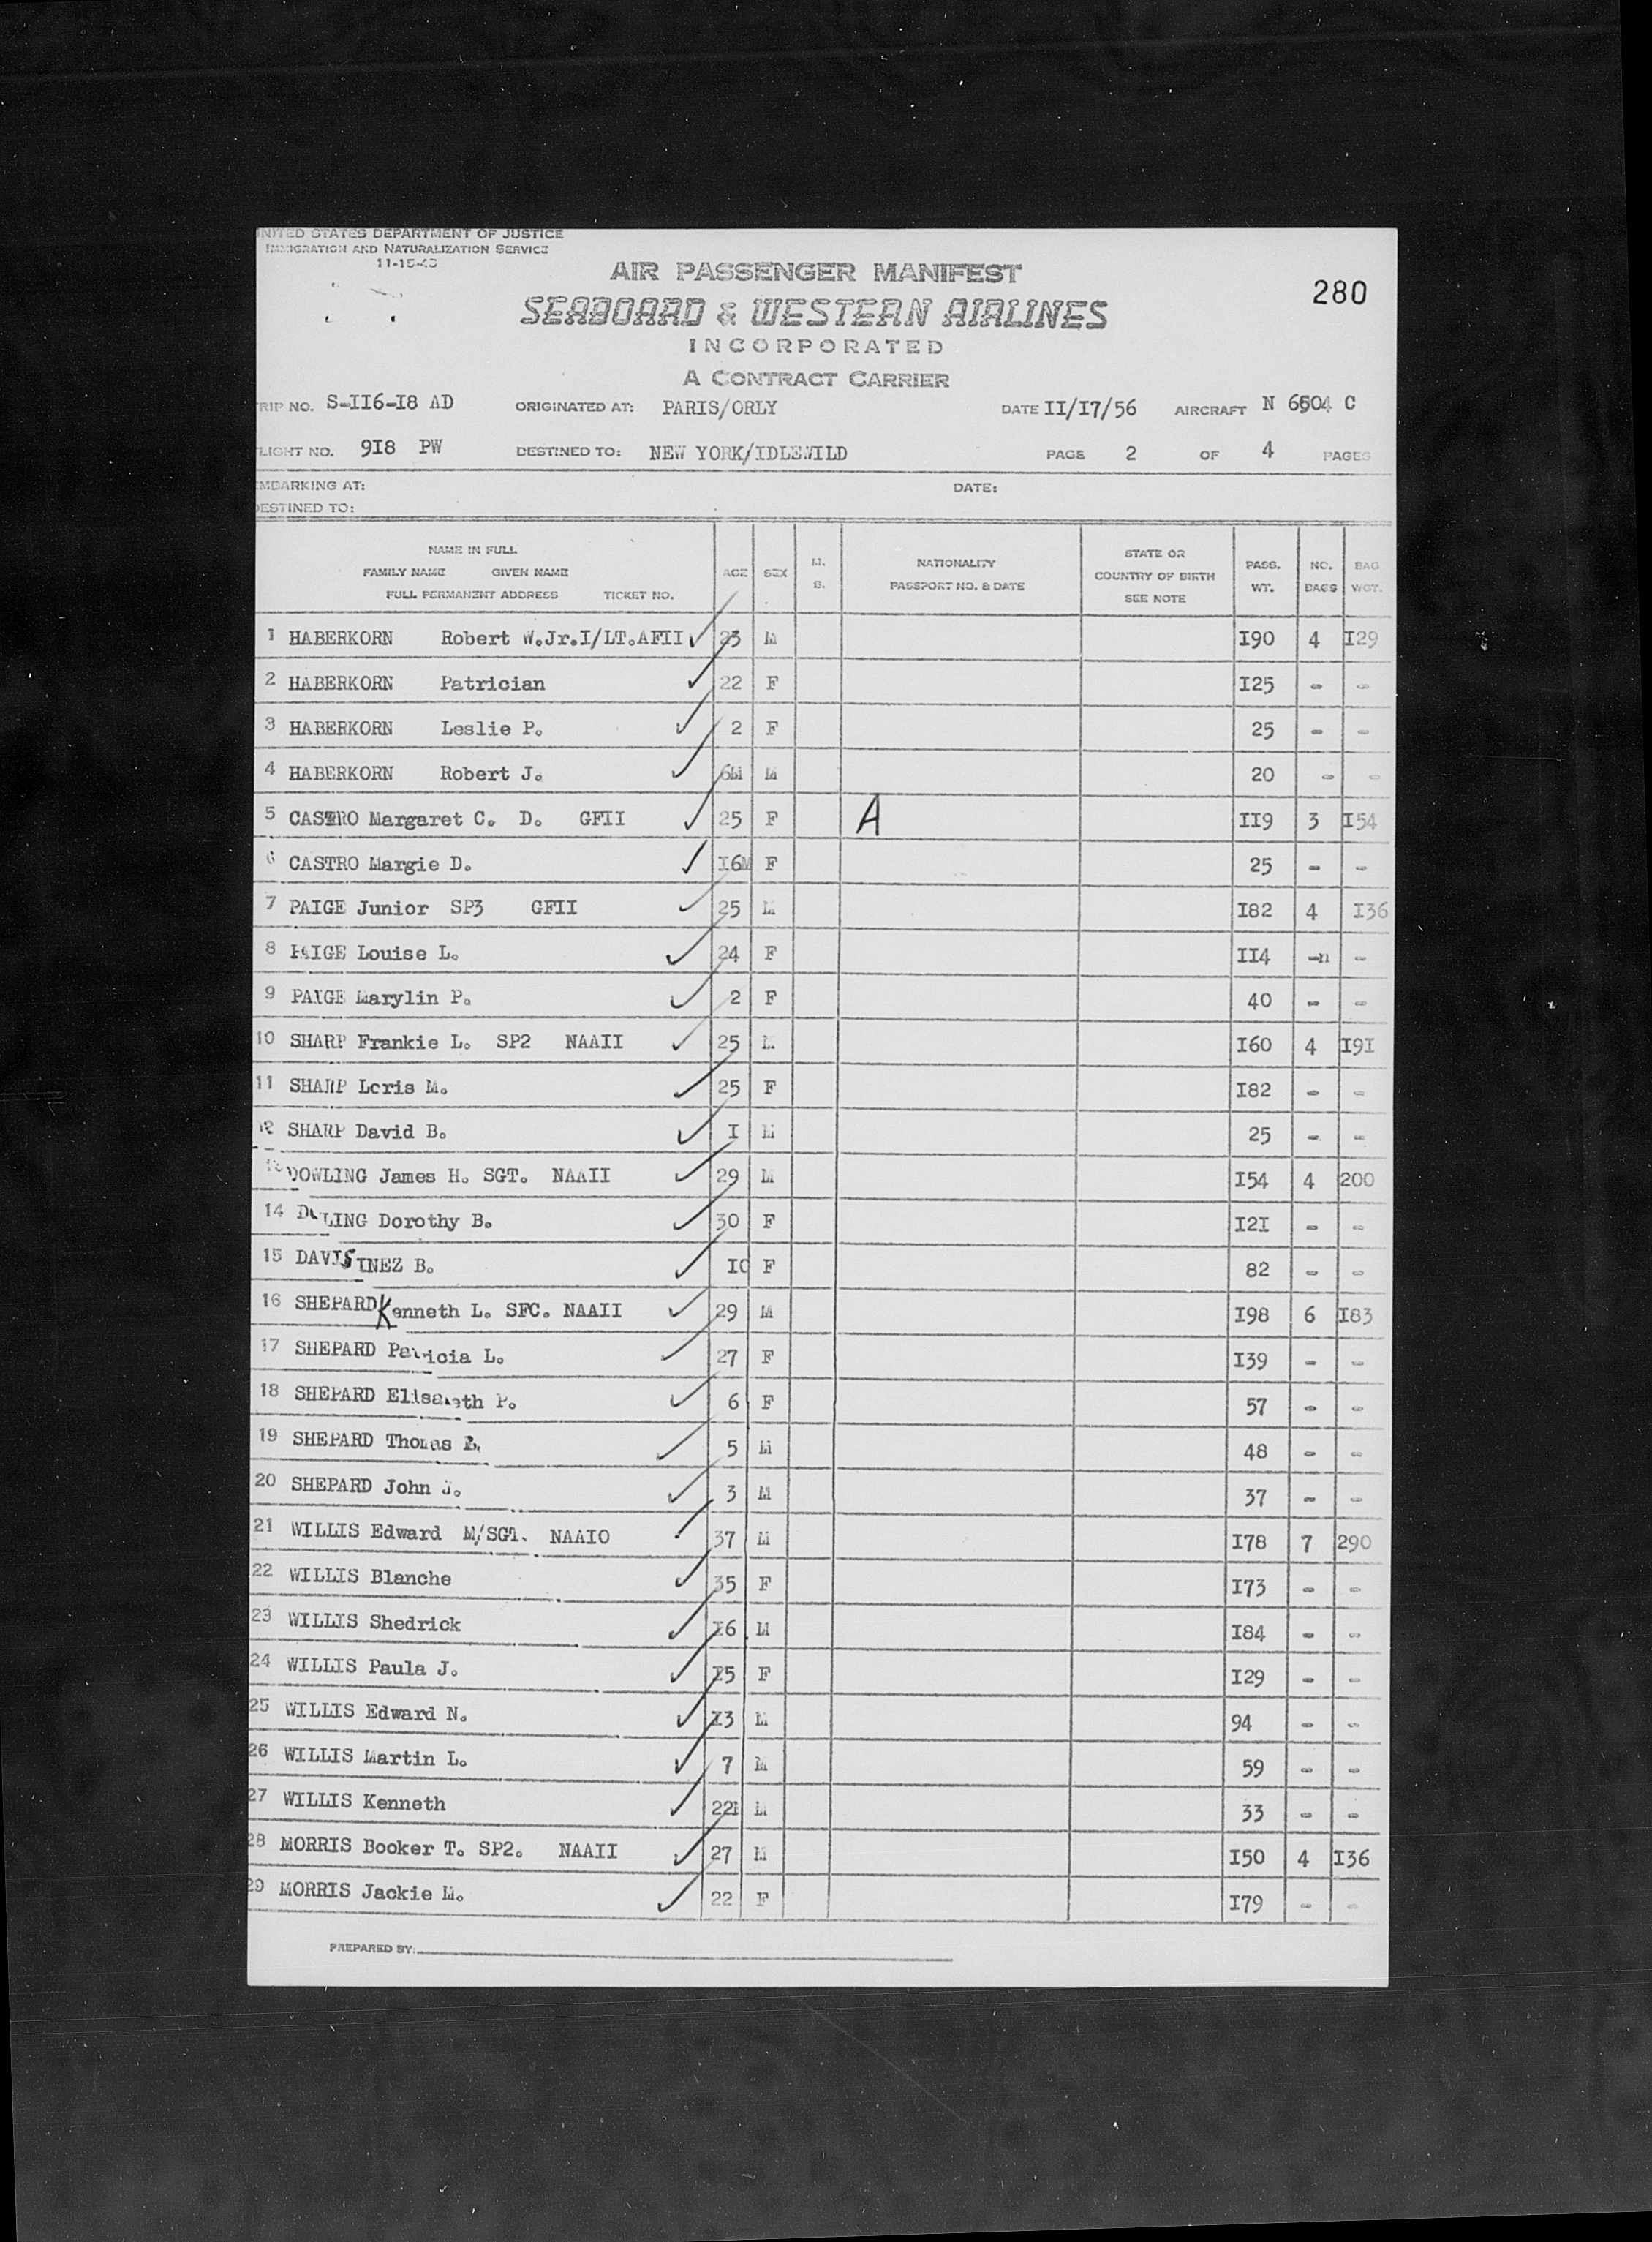 UNITED STATES DEPARTMENT OF JUSTICE
IMMIGRATION AND NATURALIZATION SERVICE
11-15-43
AIR PASSENGER MANIFEST
280
SEABOARD & WESTERN AIRLINES
INCORPORATED
A CONTRACT CARRIER
TRIP NO. S-II6-I8 AD ORIGINATED AT: PARIS/ORLY DATE II/I7/56 AIRCRAFT N 6504 C
FLIGHT NO. 9I8 PW DESTINED TO: NEW YORK/IDLEWILD PAGE 2 OF 4 PAGES
EMBARKING AT: DATE:
DESTINED TO:
NAME IN FULL
FAMILY NAME GIVEN NAME
FULL PERMANENT ADDRESS TICKET NO.
AGE SEX M. S. NATIONALITY PASSPORT NO. & DATE STATE OR COUNTRY OF BIRTH SEE NOTE PASS. WT. NO. BAGS BAG WGT.
1 HABERKORN Robert W.Jr.I/LT.AFII 23 M I90 4 I29
2 HABERKORN Patrician 22 F I25 - -
3 HABERKORN Leslie P. 2 F 25 - -
4 HABERKORN Robert J. 6M M 20 - -
5 CASTRO Margaret C. D. GFII 25 F A II9 3 I54
6 CASTRO Margie D. I6M F 25 - -
7 PAIGE Junior SP3 GFII 25 M I82 4 I36
8 PAIGE Louise L. 24 F II4 - -
9 PAIGE Marylin P. 2 F 40 - -
10 SHARP Frankie L. SP2 NAAII 25 M I60 4 I9I
11 SHARP Loris M. 25 F I82 - -
12 SHARP David B. I M 25 - -
13 DOWLING James H. SGT. NAAII 29 M I54 4 200
14 LING Dorothy B. 30 F I2I - -
15 DAVIS INEZ B. IO F 82 - -
16 SHEPARD Kenneth L. SFC. NAAII 29 M I98 6 I83
17 SHEPARD Patricia L. 27 F I39 - -
18 SHEPARD Elisabeth P. 6 F 57 - -
19 SHEPARD Thomas 5 M 48 - -
20 SHEPARD John J. 3 M 37 - -
21 WILLIS Edward M/SGT. NAAIO 37 M I78 7 290
22 WILLIS Blanche 35 F I73 - -
23 WILLIS Shedrick I6 M I84 - -
24 WILLIS Paula J. I5 F I29 - -
25 WILLIS Edward N. I3 M 94 - -
26 WILLIS Martin L. 7 M 59 - -
27 WILLIS Kenneth M 33 - -
28 MORRIS Booker T. SP2. NAAII 27 M I50 4 I36
29 MORRIS Jackie M. 22 F I79 - -
PREPARED BY: